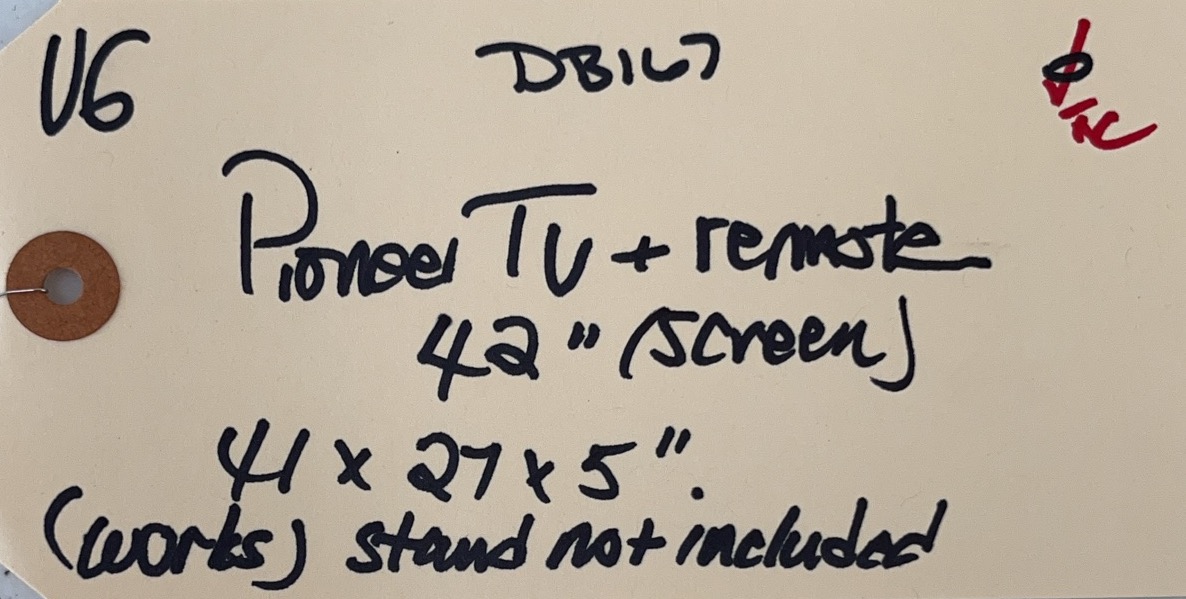 VG
DB167
Pioneer TV + remote
42" (screen)
41 x 27 x 5".
(works) stand not included